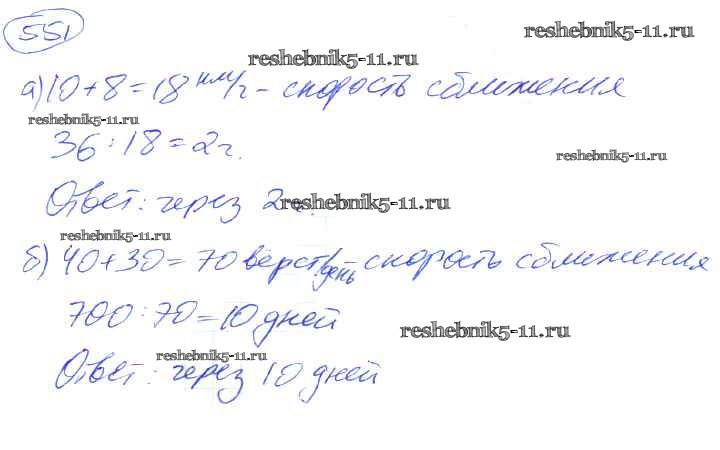 551
reshebnik5-11.ru
reshebnik5-11.ru
а) 10 + 8 = 18 км/ч - скорость сближения
reshebnik5-11.ru
36 : 18 = 2 ч.
reshebnik5-11.ru
Ответ: через 2
reshebnik5-11.ru
reshebnik5-11.ru
б) 40 + 30 = 70 верст/день - скорость сближения
700 : 70 = 10 дней
reshebnik5-11.ru
reshebnik5-11.ru
Ответ: через 10 дней